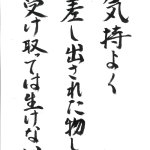 気持よく
差し出された物し
受け取っては生けない